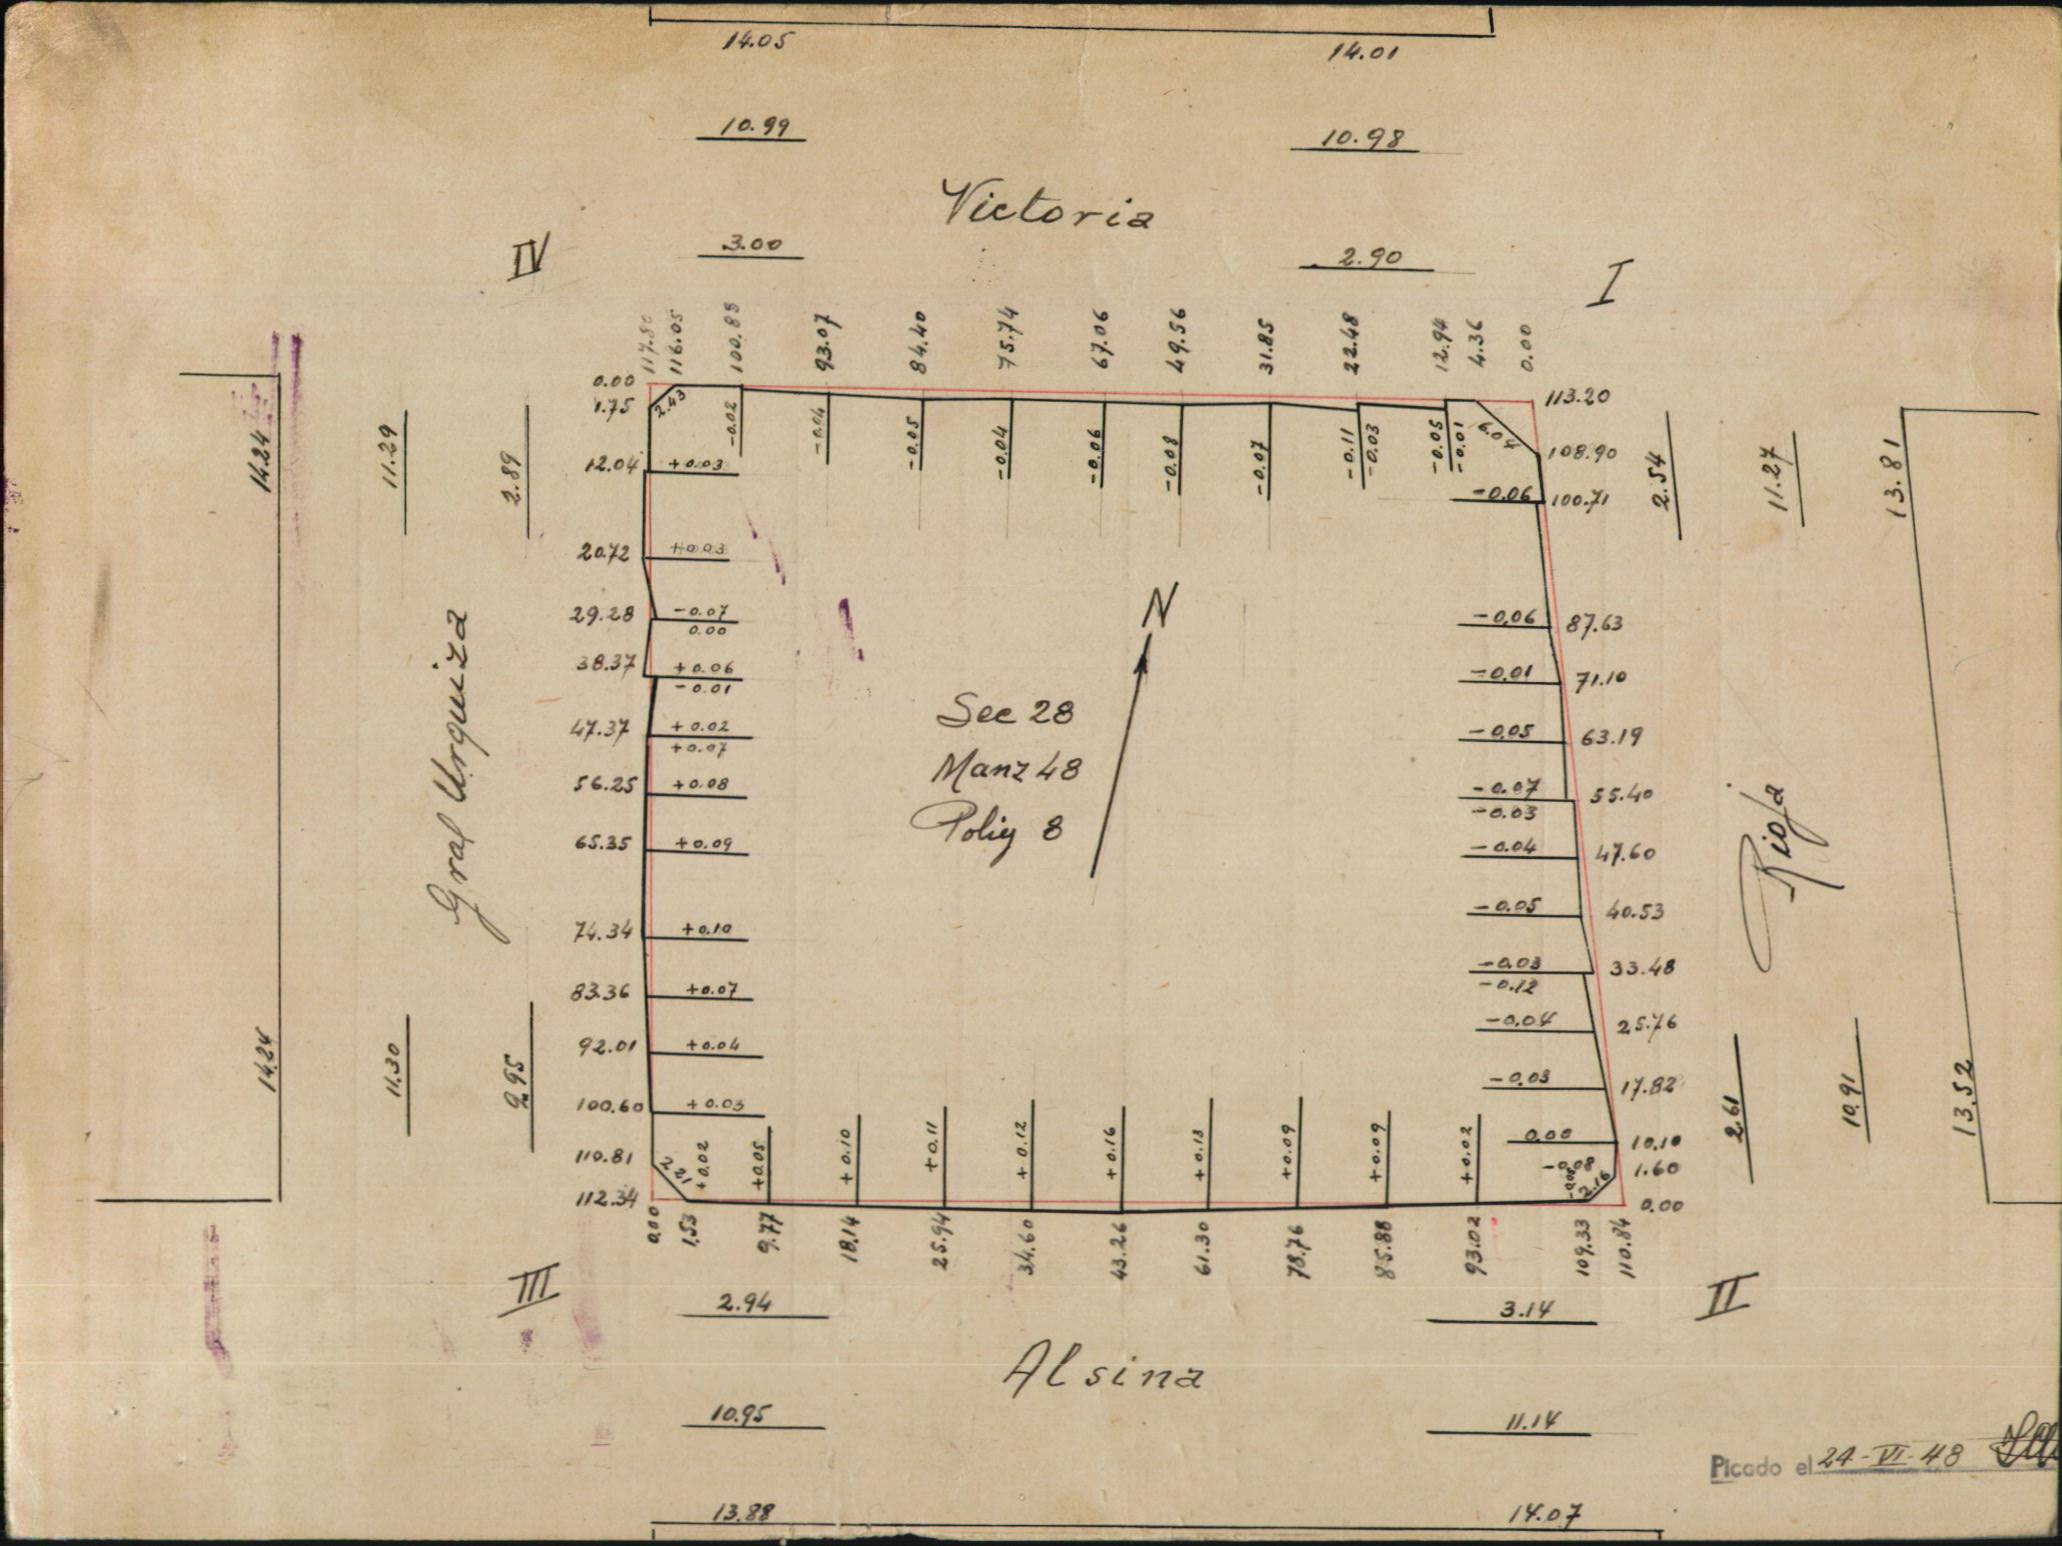 14.05
14.01
10.99
10.98
Victoria
3.00
2.90
IV
I
117.80
116.05
100.88
93.07
84.40
75.74
67.06
49.56
31.85
22.48
12.94
4.36
0.00
0.00
1.75
12.04
20.72
29.28
38.37
47.37
56.25
65.35
74.34
83.36
92.01
100.60
110.81
112.34
2.43
+0.03
+0.03
-0.07
0.00
+0.06
-0.01
+0.02
+0.07
+0.08
+0.09
+0.10
+0.07
+0.04
+0.03
2.21
-0.02
-0.04
-0.05
-0.04
-0.06
-0.08
-0.07
-0.11
-0.03
-0.05
-0.01
113.20
108.90
100.71
87.63
71.10
63.19
55.40
47.60
40.53
33.48
25.76
17.82
10.10
1.60
0.00
-0.06
-0.06
-0.01
-0.05
-0.07
-0.03
-0.04
-0.05
-0.03
-0.12
-0.04
-0.03
0.00
-0.08
2.16
14.24
11.29
2.89
Gral Urquiza
14.24
11.30
2.95
2.54
11.27
13.81
Rioja
2.61
10.91
13.52
N
Sec 28
Manz 48
Polig 8
+0.02
+0.05
+0.10
+0.11
+0.12
+0.16
+0.13
+0.09
+0.09
+0.02
0.00
1.53
9.77
18.14
25.94
34.60
43.26
61.30
78.76
85.88
93.02
109.33
110.84
III
II
2.94
3.14
Alsina
10.95
11.14
Picado el 24-VI-48
13.88
14.07